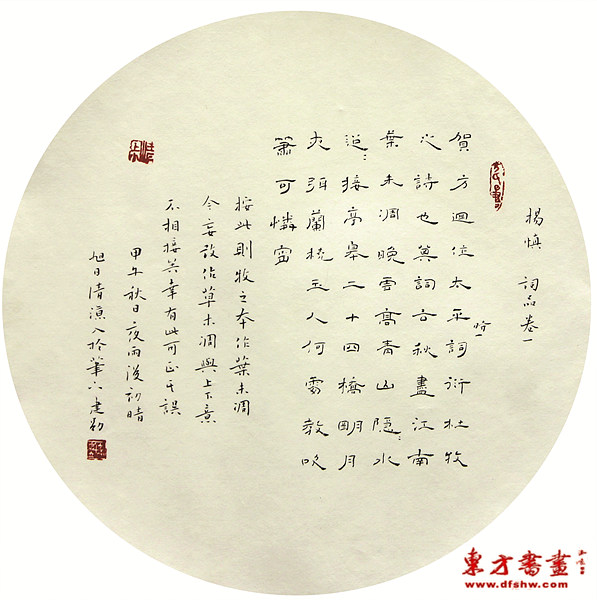 楊慎 詞品卷一
時一
賀方回作太平詞衍杜牧
之詩也其詞云秋盡江南
葉未凋晚雲高青山隱:水
迢:接亭皋二十四橋明月
夜弭蘭橈玉人何處教吹
簫可憐宵
按此則牧之本作葉未凋
今妄改作草未凋與上下意
不相接矣幸有此可正其誤
甲午秋日夜雨後初晴
旭日清演入於筆下建
東方書畫
www.dfshw.com